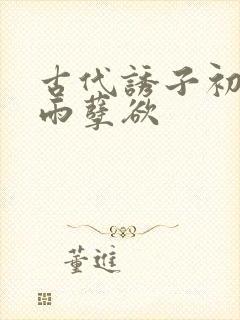 古代誘子初
雨孽欲
董進